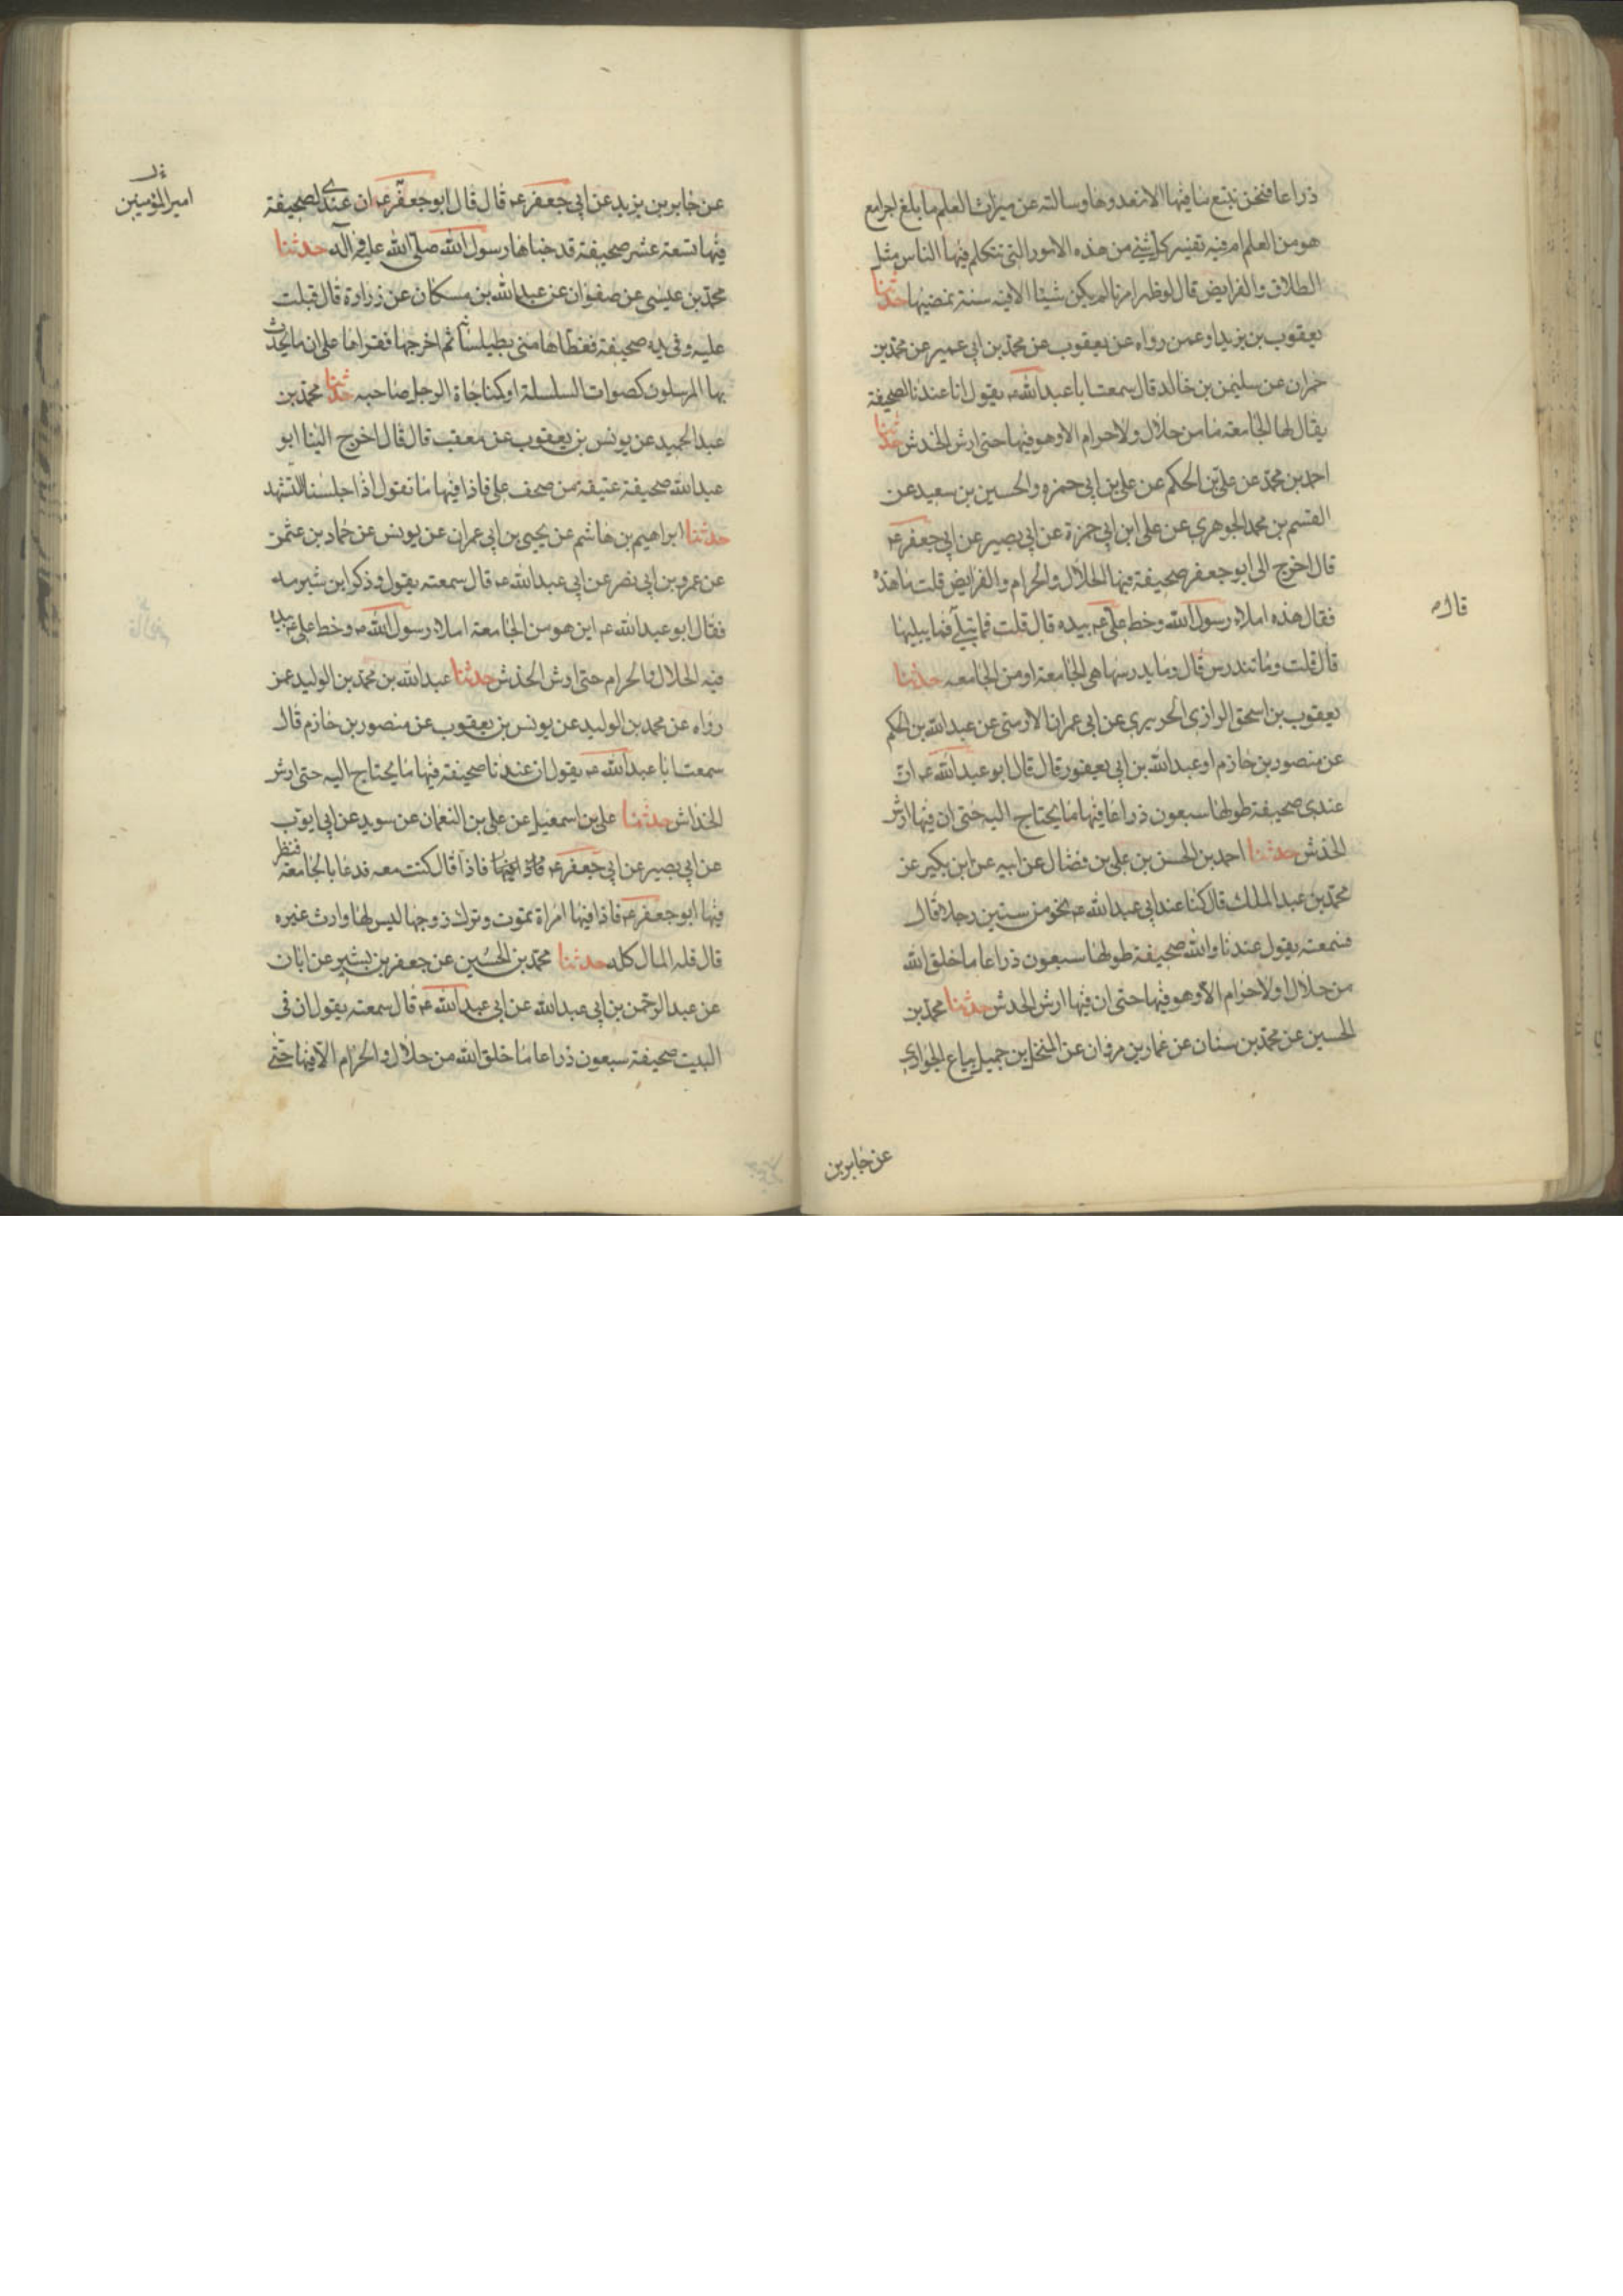 ذراعا فنحن نتبع ما فيها الا نعدوها وسالته عن ميراث العلم ما بلغ اجوامع
هو من العلم ام فيه تفسير كل شئ من هذه الامور التى تتكلم فيها الناس مثل
الطلاق والفرايض قال لو ظهر امرنا لم يكن شيئا الا فيه سنة نمضيها حدثنا
يعقوب بن يزيد او عمن رواه عن يعقوب عن محمد بن ابى عمير عن محمد بن
حمران عن سليمن بن خالد قال سمعت ابا عبد الله ع يقول ان عندنا الصحيفة
يقال لها الجامعة ما من حلال ولا حرام الا وهو فيها حتى ارش الخدش حدثنا
احمد بن محمد عن على بن الحكم عن على بن ابى حمزه والحسين بن سعيد عن
القسم بن محمد الجوهرى عن على ابن ابى حمزة عن ابى بصير عن ابى جعفر ع
قال اخرج الى ابو جعفر صحيفة فيها الحلال والحرام والفرايض قلت ما هذه
فقال هذه املاء رسول الله وخط على ع بيده قال قلت فما تبلى فما يبليها
قال قلت وما تندرس قال وما يدرسها هى الجامعة او من الجامعه حدثنا
قال ع
يعقوب بن اسحق الرازى الحريرى عن ابى عمران الارمنى عن عبد الله بن الحكم
عن منصور بن حازم او عبد الله بن ابى يعفور قال قال ابو عبد الله ع ان
عندى صحيفة طولها سبعون ذراعا فيها ما يحتاج اليه حتى ان فيها ارش
الخدش حدثنا احمد بن الحسن بن على بن فضال عن ابيه عن ابن بكير عن
محمد بن عبد الملك قال كنا عند ابى عبد الله ع نحو من ستين رجلا قال
فسمعته يقول عندنا والله صحيفة طولها سبعون ذراعا ما خلق الله
من حلال او لا حرام الا وهو فيها حتى ان فيها ارش الخدش حدثنا محمد بن
الحسين عن محمد بن سنان عن عمار بن مروان عن المنخل بن جميل بياع الجوارى
عن جابر بن
عن جابر بن يزيد عن ابى جعفر ع قال قال ابو جعفر ع ان عندى لصحيفة
فيها تسعة عشر صحيفة قد حباها رسول الله صلى الله عليه وآله حدثنا
امير المؤمنين
محمد بن عيسى عن صفوان عن عبد الله بن مسكان عن زرارة قال قبلت
عليه وفى يده صحيفة فغطاها منى بطيلسانه ثم اخرجها فقراها على ان ما يحدث
بها المرسلون كصوات السلسلة او كمناجاة الرجل صاحبه حدثنا محمد بن
عبد الحميد عن يونس بن يعقوب عن معقب قال قال اخرج الينا ابو
عبد الله صحيفة عتيقة من صحف على فاذا فيها ما نقول اذا جلسنا للتشهد
حدثنا ابراهيم بن هاشم عن يحيى بن ابى عمران عن يونس عن حماد بن عثمن
عن عمرو بن ابى نصر عن ابى عبد الله ع قال سمعته يقول وذكر ابن شبرمه
فقال ابو عبد الله ع اين هو من الجامعة املاء رسول الله ص وخط على ع بيده
فيه الحلال والحرام حتى ارش الخدش حدثنا عبد الله بن محمد بن الوليد عمن
رواه عن محمد بن الوليد عن يونس بن يعقوب عن منصور بن حازم قال
سمعت ابا عبد الله ع يقول ان عندنا صحيفة فيها ما يحتاج اليه حتى ارش
الخداش حدثنا على بن اسمعيل عن على بن النعمان عن سويد عن ابى ايوب
عن ابى بصير عن ابى جعفر ع فاذا قال كنت معه فدعا بالجامعة فنظر
فيها ابو جعفر ع فاذا فيها امراة تموت وترك زوجها ليس لها وارث غيره
قال فله المال كله حدثنا محمد بن الحسين عن جعفر بن بشير عن ابان
عن عبد الرحمن بن ابى عبد الله عن ابى عبد الله ع قال سمعته يقول ان فى
البيت صحيفة سبعون ذراعا ما خلق الله من حلال والحرام الا فيها حتى